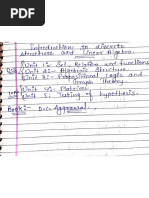 Introduction to discrete
structure and Linear Algebra.
Unit 1:- Set, Relation and functions
Unit 2:- Algebraic Structure
Unit 3:- Propositional Logic and
Graph Theory.
Unit 4:- Matrices
Unit 5:- Testing of hypothesis.
Book:- D.C. Aggarwal.